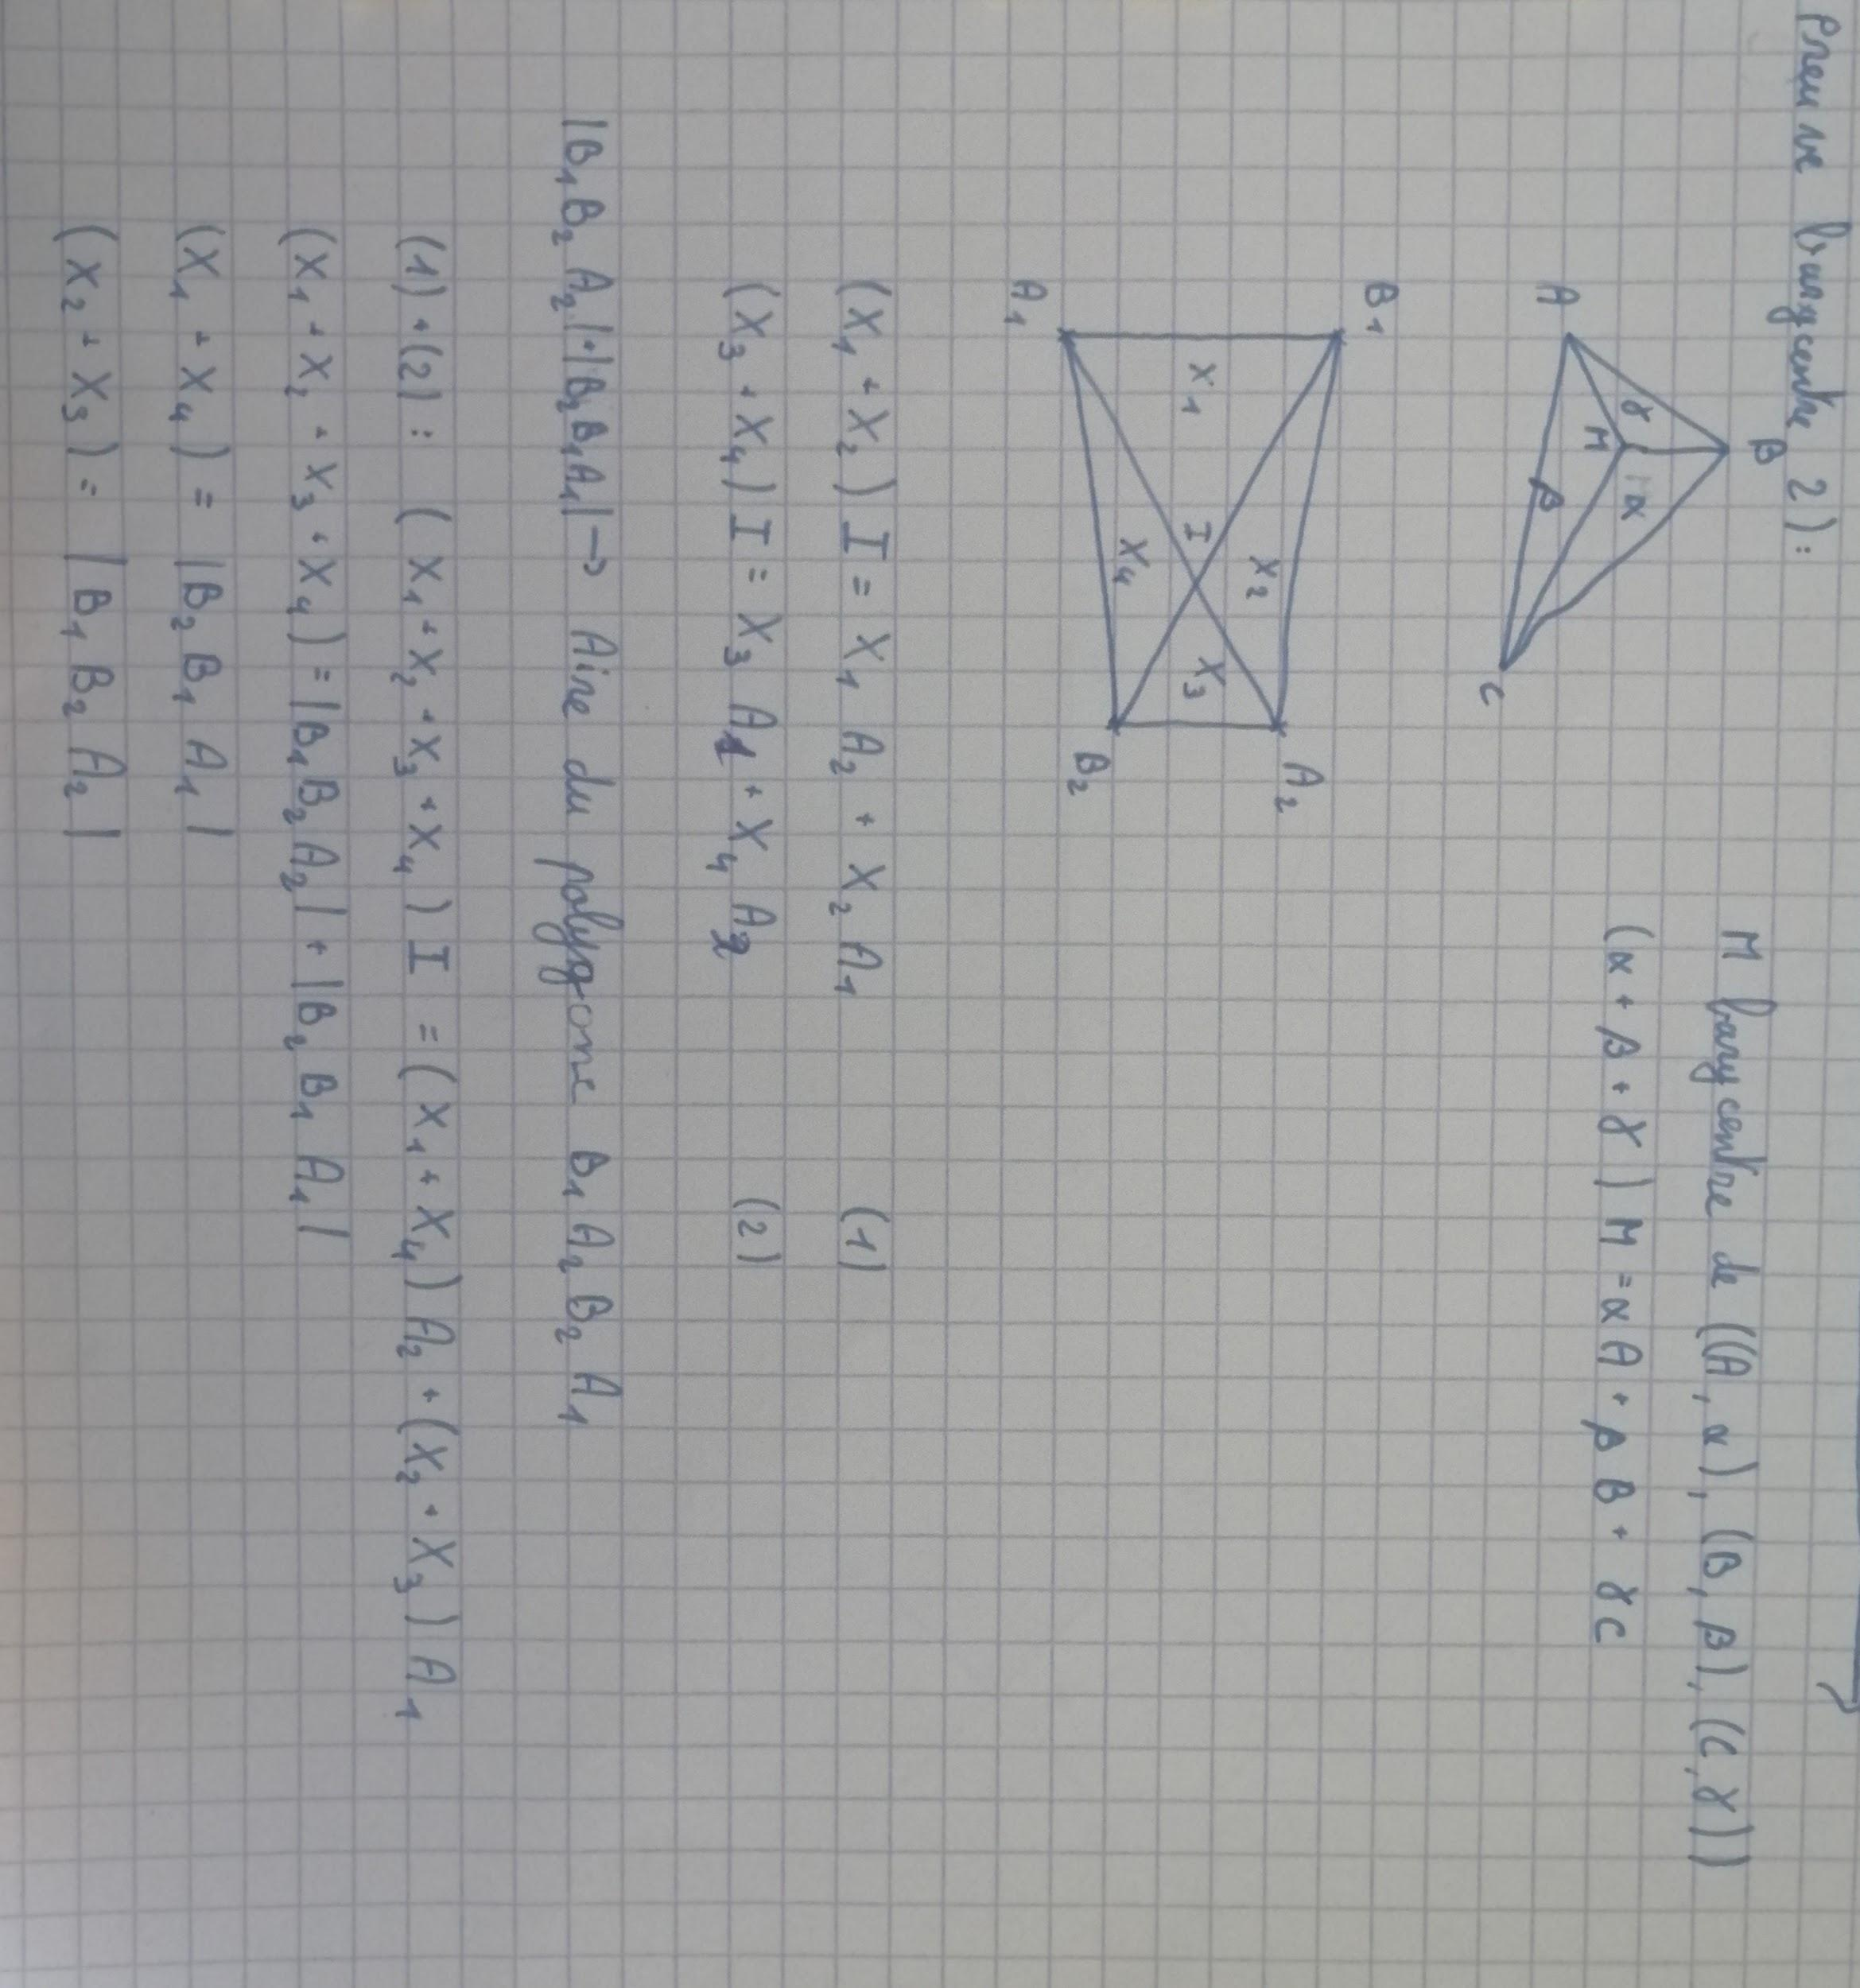 Preuve barycentre 2):
B
γ
α
A
M
β
C
M barycentre de ((A, α), (B, β), (C, γ))
(α + β + γ) M = α A + β B + γ C
B₁
A₂
X₂
X₁
I
X₃
X₄
A₁
B₂
(X₁ + X₂) I = X₁ A₂ + X₂ A₁ (1)
(X₃ + X₄) I = X₃ A₁ + X₄ A₂ (2)
|B₁B₂A₂|+|B₂B₁A₁| → Aire du polygone B₁ A₂ B₂ A₁
(1) + (2) : (X₁ + X₂ + X₃ + X₄) I = (X₁ + X₄) A₂ + (X₂ + X₃) A₁
(X₁ + X₂ + X₃ + X₄) = |B₁ B₂ A₂| + |B₂ B₁ A₁|
(X₁ + X₄) = |B₂ B₁ A₁|
(X₂ + X₃) = |B₁ B₂ A₂|